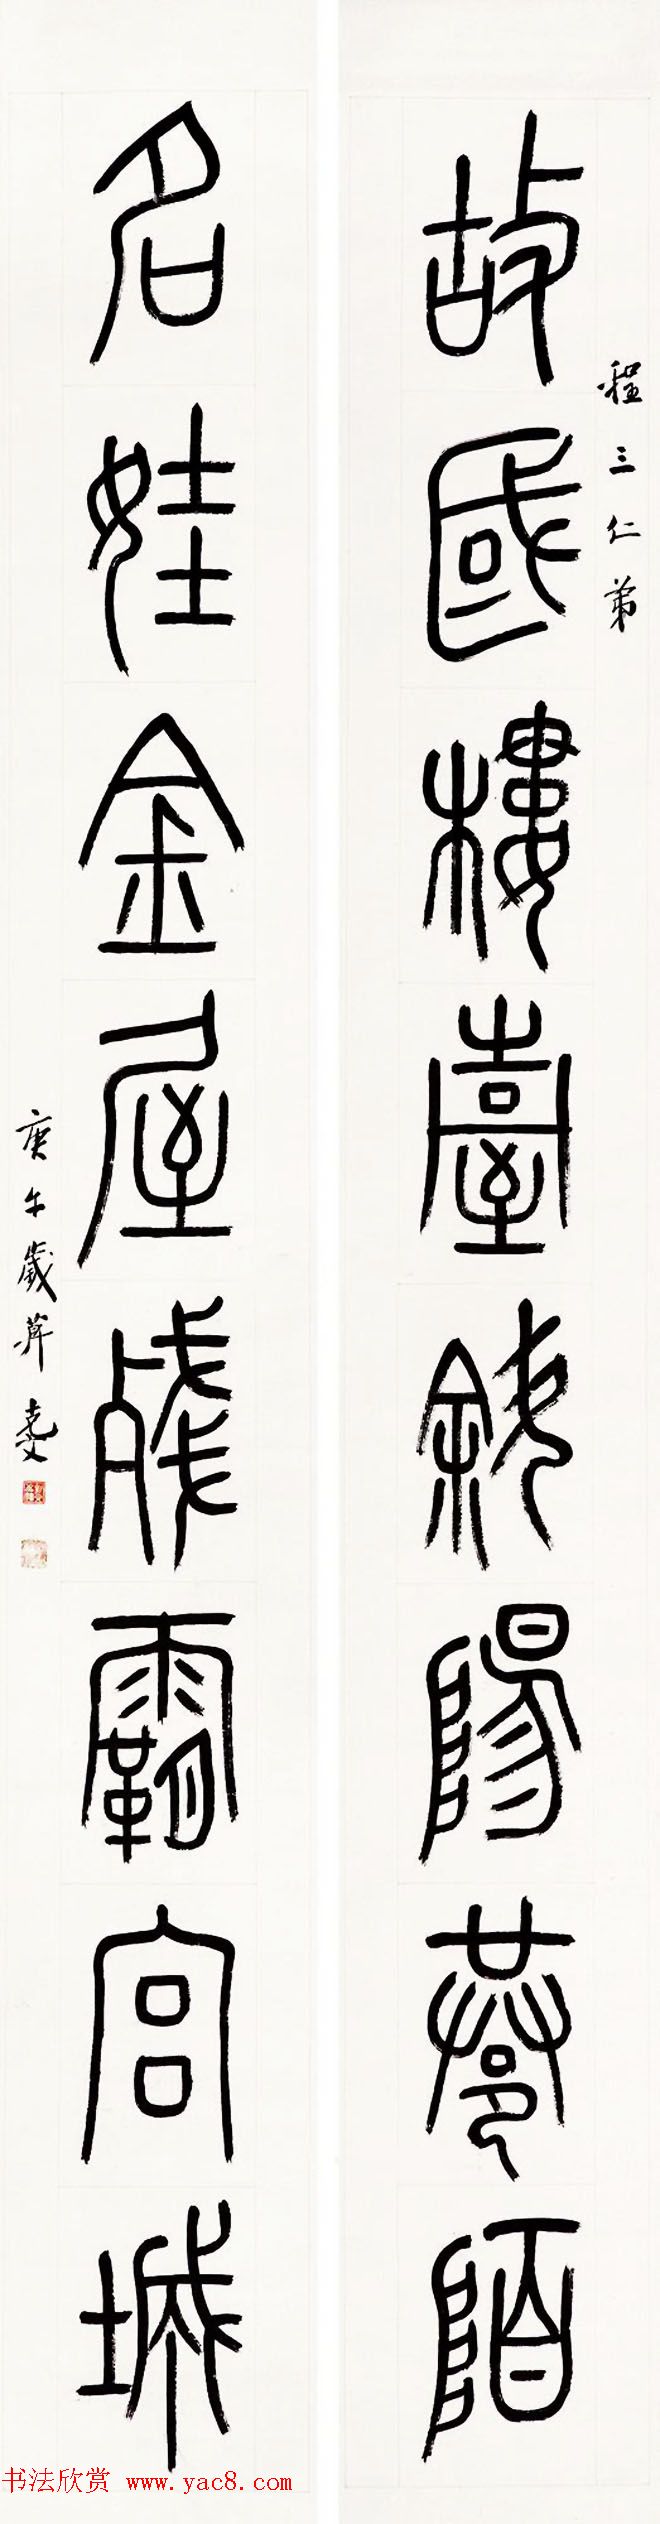 程三仁弟
故國樓臺斜陽巷陌
名娃金屋殘霸宮城
庚午歲
书法欣赏 www.yac8.com